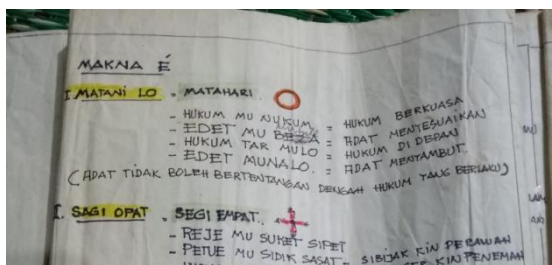 MAKNA É
I. MATANI LO = MATAHARI
- HUKUM MU NUKUM = HUKUM BERKUASA
- EDET MU = ADAT MENYESUAIKAN
- HUKUM TAR MULO = HUKUM DI DEPAN
- EDET MUNALO. = ADAT MENYAMBUT.
(ADAT TIDAK BOLEH BERTENTANGAN DENGAH HUKUM YANG BERLAKU)
I. SAGI OPAT = SEGI EMPAT.
- REJE MU SUKET SIPET
- PETUE MU SIDIK SASAT = SIBIJAK KIN PERAWAH
KIN PENEMAH